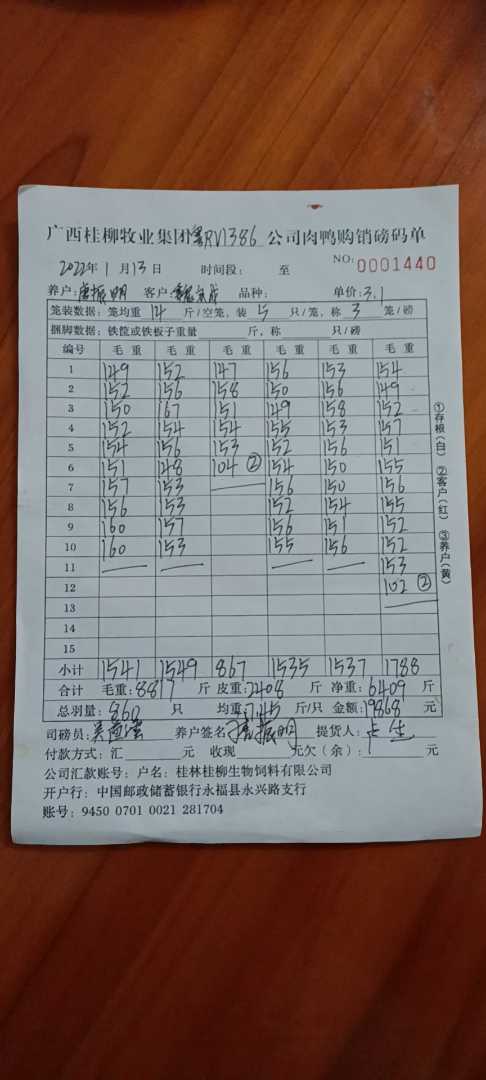 广西桂柳牧业集团粤RV1386公司肉鸭购销磅码单
2022年1月13日 时间段: 至 NO:0001440
养户:唐振明 客户: 品种: 单价:3.1
笼装数据:笼均重14斤/空笼,装5只/笼,称3笼/磅
捆脚数据:铁筐或铁板子重量 斤,称 只/磅
编号 毛重 毛重 毛重 毛重 毛重 毛重
1 149 152 147 156 153 154
2 152 156 158 150 156 149
3 150 167 151 149 158 152
4 152 154 154 155 153 157
5 154 156 153 152 156 151
6 151 148 104② 154 150 155
7 157 153 156 150 156
8 156 153 152 154 155
9 160 157 156 151 152
10 160 153 155 156 152
11 153
12 102②
13
14
15
小计 1541 1549 867 1535 1537 1788
合计 毛重:8817斤 皮重:2408斤 净重:6409斤
总羽量:860只 均重:7.45斤/只 金额:19868元
司磅员: 养户签名 唐振明 提货人:
付款方式:汇 元 收现 元欠(余): 元
公司汇款账号:户名:桂林桂柳生物饲料有限公司
开户行:中国邮政储蓄银行永福县永兴路支行
账号:9450 0701 0021 281704
①存根(白) ②客户(红) ③养户(黄)